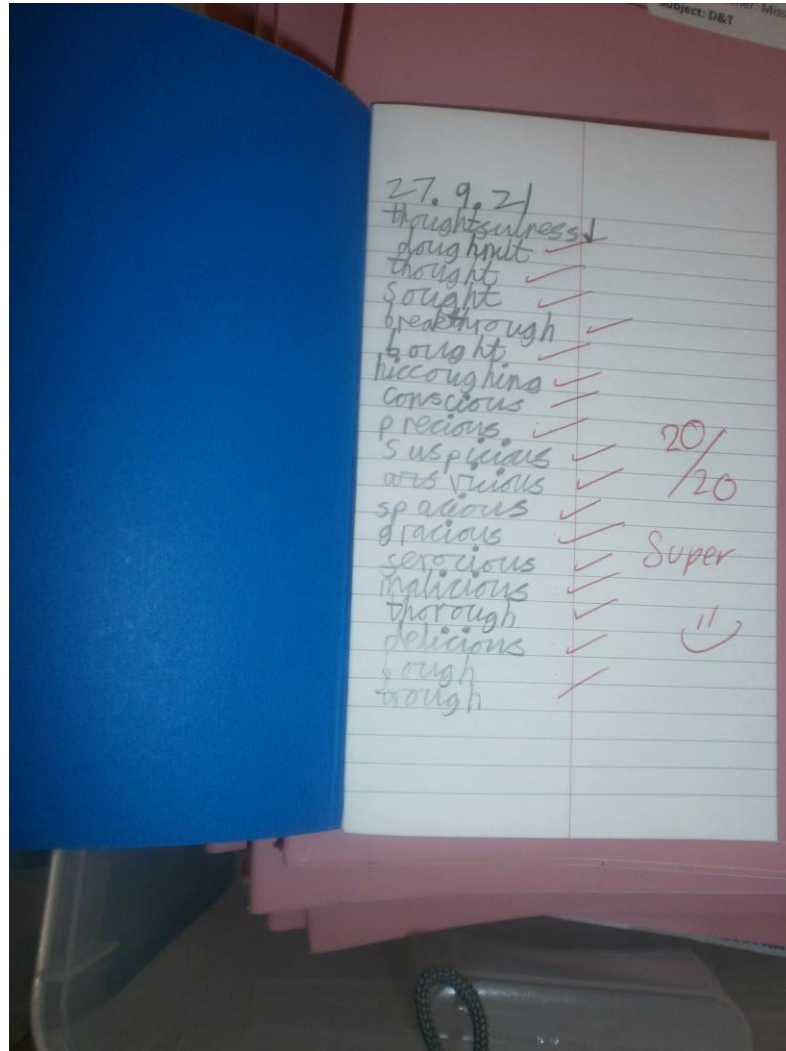 Subject: D&T
27.9.21
thoughtsulness
doughnut
thought
sought
breakthrough
bought
hiccoughing
conscious
precious
suspicious
vicious
spacious
gracious
serocious
malicious
thorough
delicious
20/20
Super